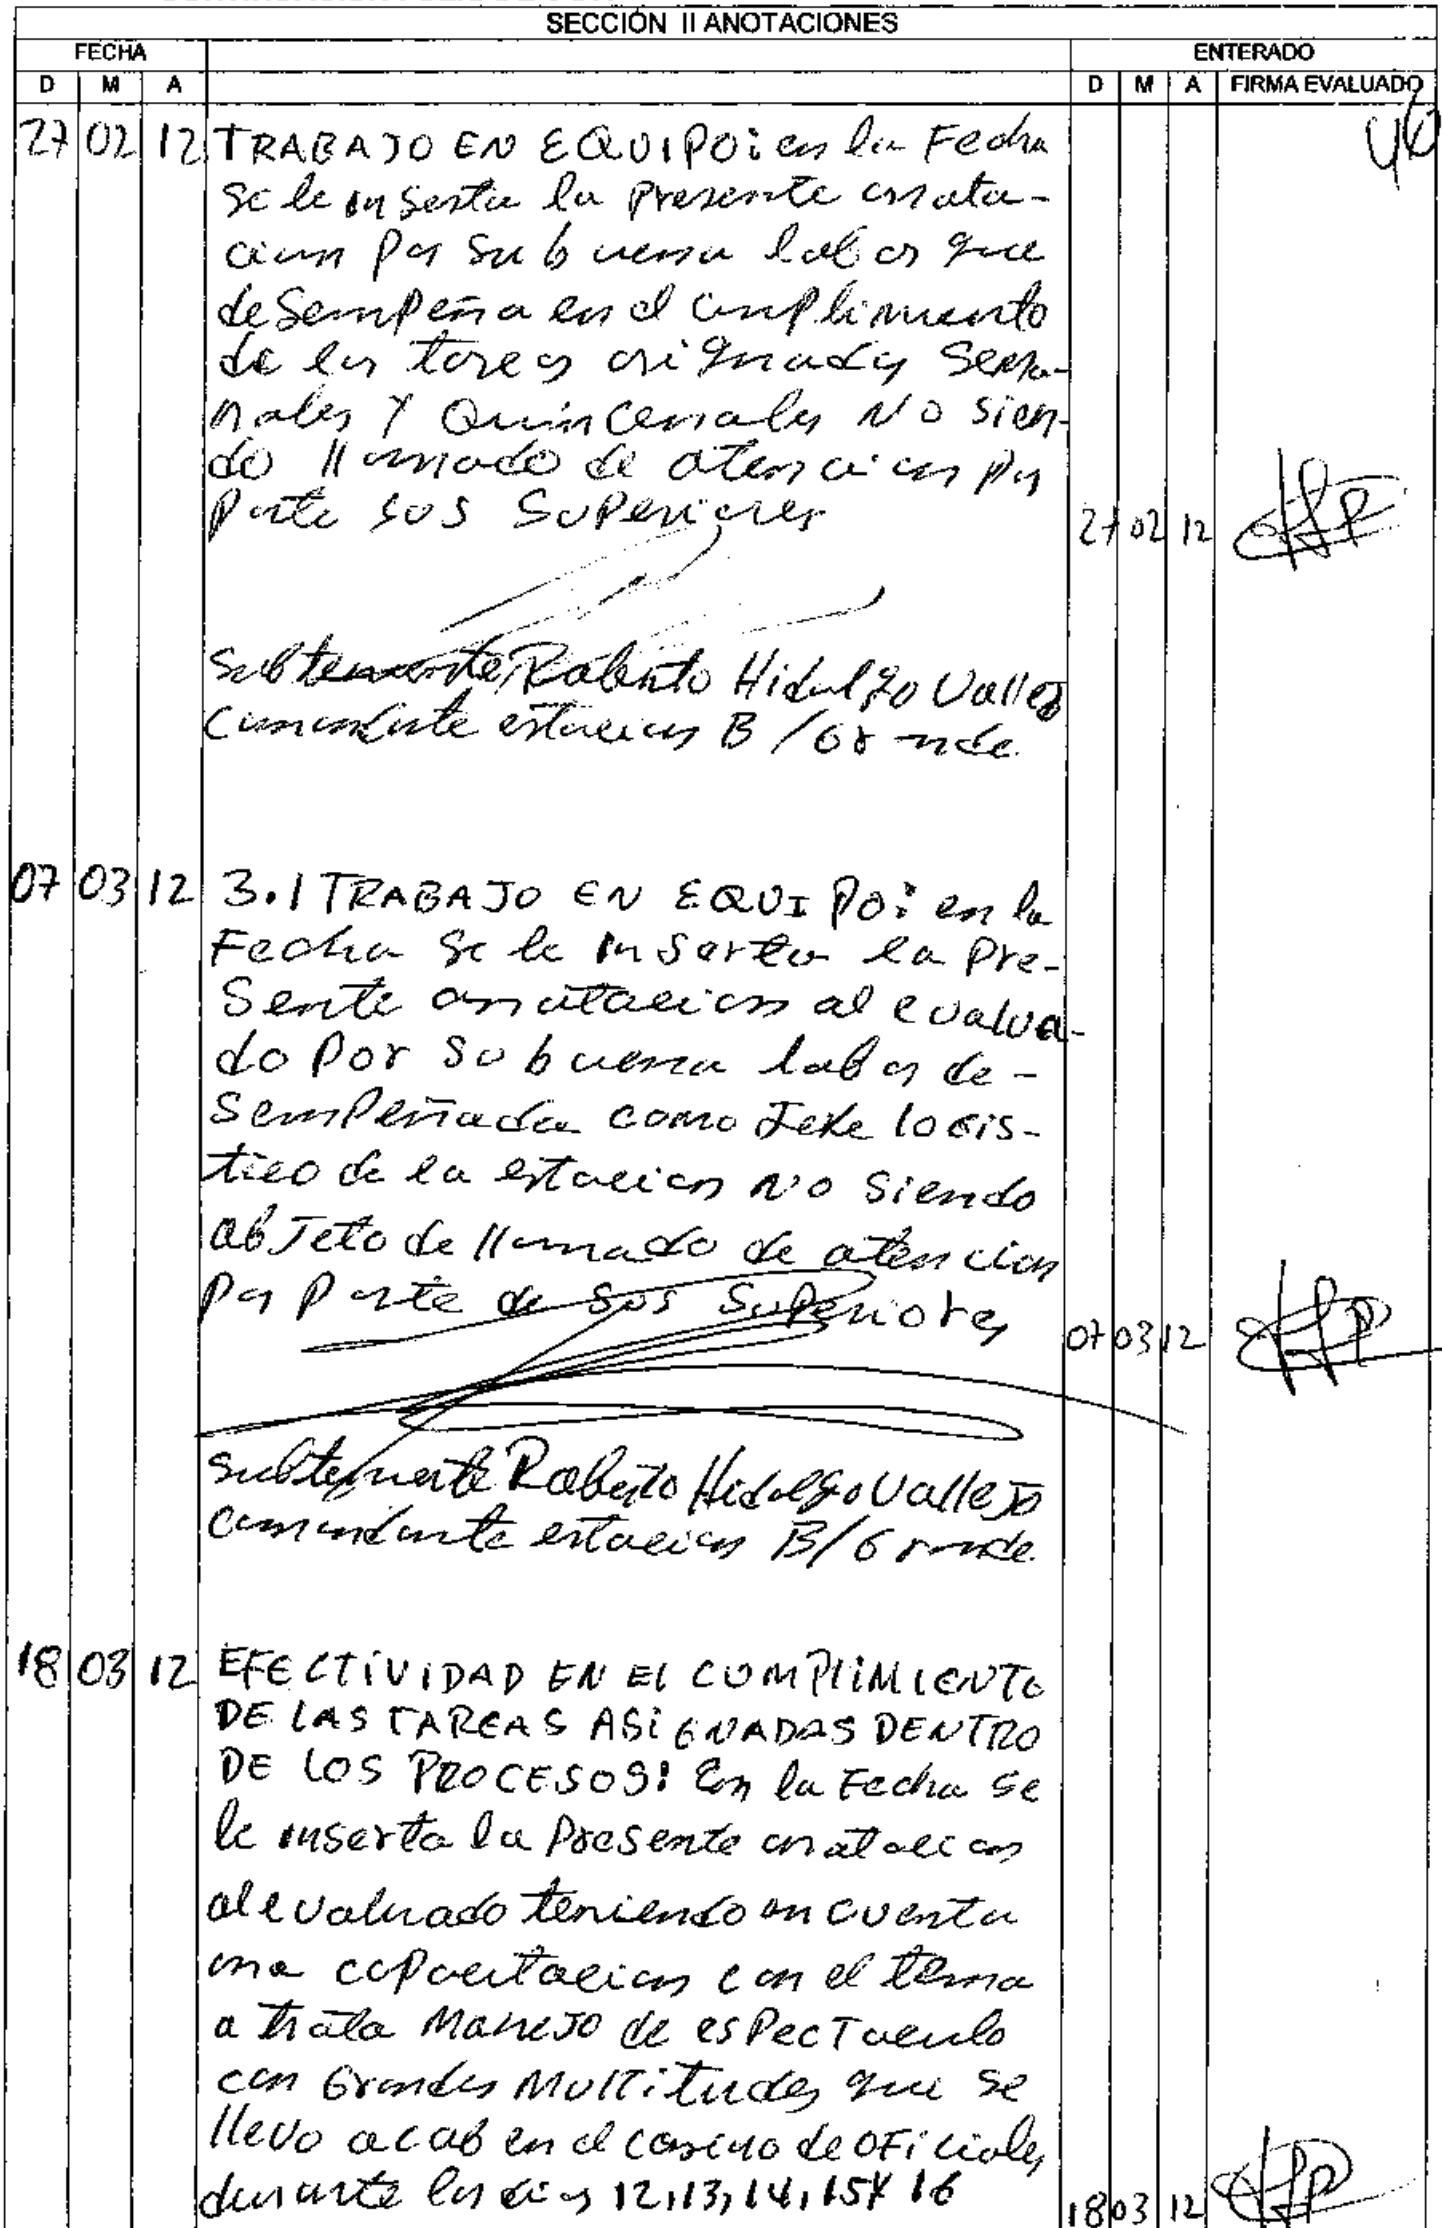 SECCIÓN II ANOTACIONES
FECHA ENTERADO
D M A D M A FIRMA EVALUADO
46
27 02 12 TRABAJO EN EQUIPO: en la Fecha
se le inserta la presente anota-
cion por su buena labor que
desempeña en el cumplimiento
de las tareas asignadas sema-
nales y Quincenales No sien-
do llamado de atencion por
parte sus Superiores 27 02 12
Subteniente Roberto Hidalgo Vallejo
Comandante estacion B/Grande
07 03 12 3.1 TRABAJO EN EQUIPO: en la
Fecha se le inserta la pre-
sente anotacion al evalua-
do por su buena labor de-
sempeñada como Jefe logis-
tico de la estacion No siendo
objeto de llamado de atencion
por parte de sus superiores 07 03 12
Subteniente Roberto Hidalgo Vallejo
Comandante estacion B/Grande
18 03 12 EFECTIVIDAD EN EL CUMPLIMIENTO
DE LAS TAREAS ASIGNADAS DENTRO
DE LOS PROCESOS: En la Fecha se
le inserta la presente anotacion
al evaluado teniendo en cuenta
una capacitacion con el tema
a trata Manejo de espectaculo
con Grandes Multitudes que se
llevo acab en el casino de oficiales
durante los dias 12, 13, 14, 15 Y 16 18 03 12